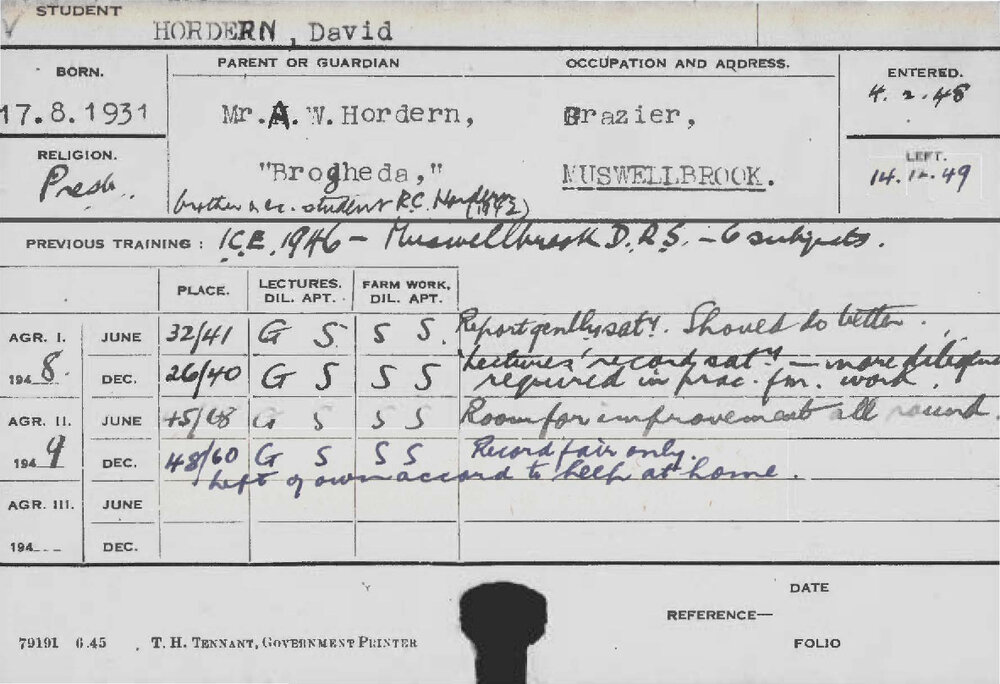 STUDENT
HORDERN, David
BORN.
PARENT OR GUARDIAN
OCCUPATION AND ADDRESS.
ENTERED.
17.8.1931
Mr. A. W. Hordern,
Grazier,
4. 2. 48
RELIGION.
"Brogheda,"
MUSWELLBROOK.
LEFT.
Presb.
14.12.49
brother ex. student R.C. Hordern (1942)
PREVIOUS TRAINING : I.C.E. 1946 – Muswellbrook D.R.S. – 6 subjects.
PLACE.
LECTURES. DIL. APT.
FARM WORK. DIL. APT.
AGR. I. JUNE 32/41 G S S S. Report genlly sat'y. Should do better.
1948. DEC. 26/40 G S S S 'Lectures' record sat'y – more diligence
required in prac. fm. work.
AGR. II. JUNE 45/68 G S S S Room for improvement all round.
1949 DEC. 48/60 G S S S Record fair only.
Left of own accord to help at home.
AGR. III. JUNE
194_ _ _ DEC.
DATE
REFERENCE—
79191 6.45 T. H. TENNANT, GOVERNMENT PRINTER
FOLIO